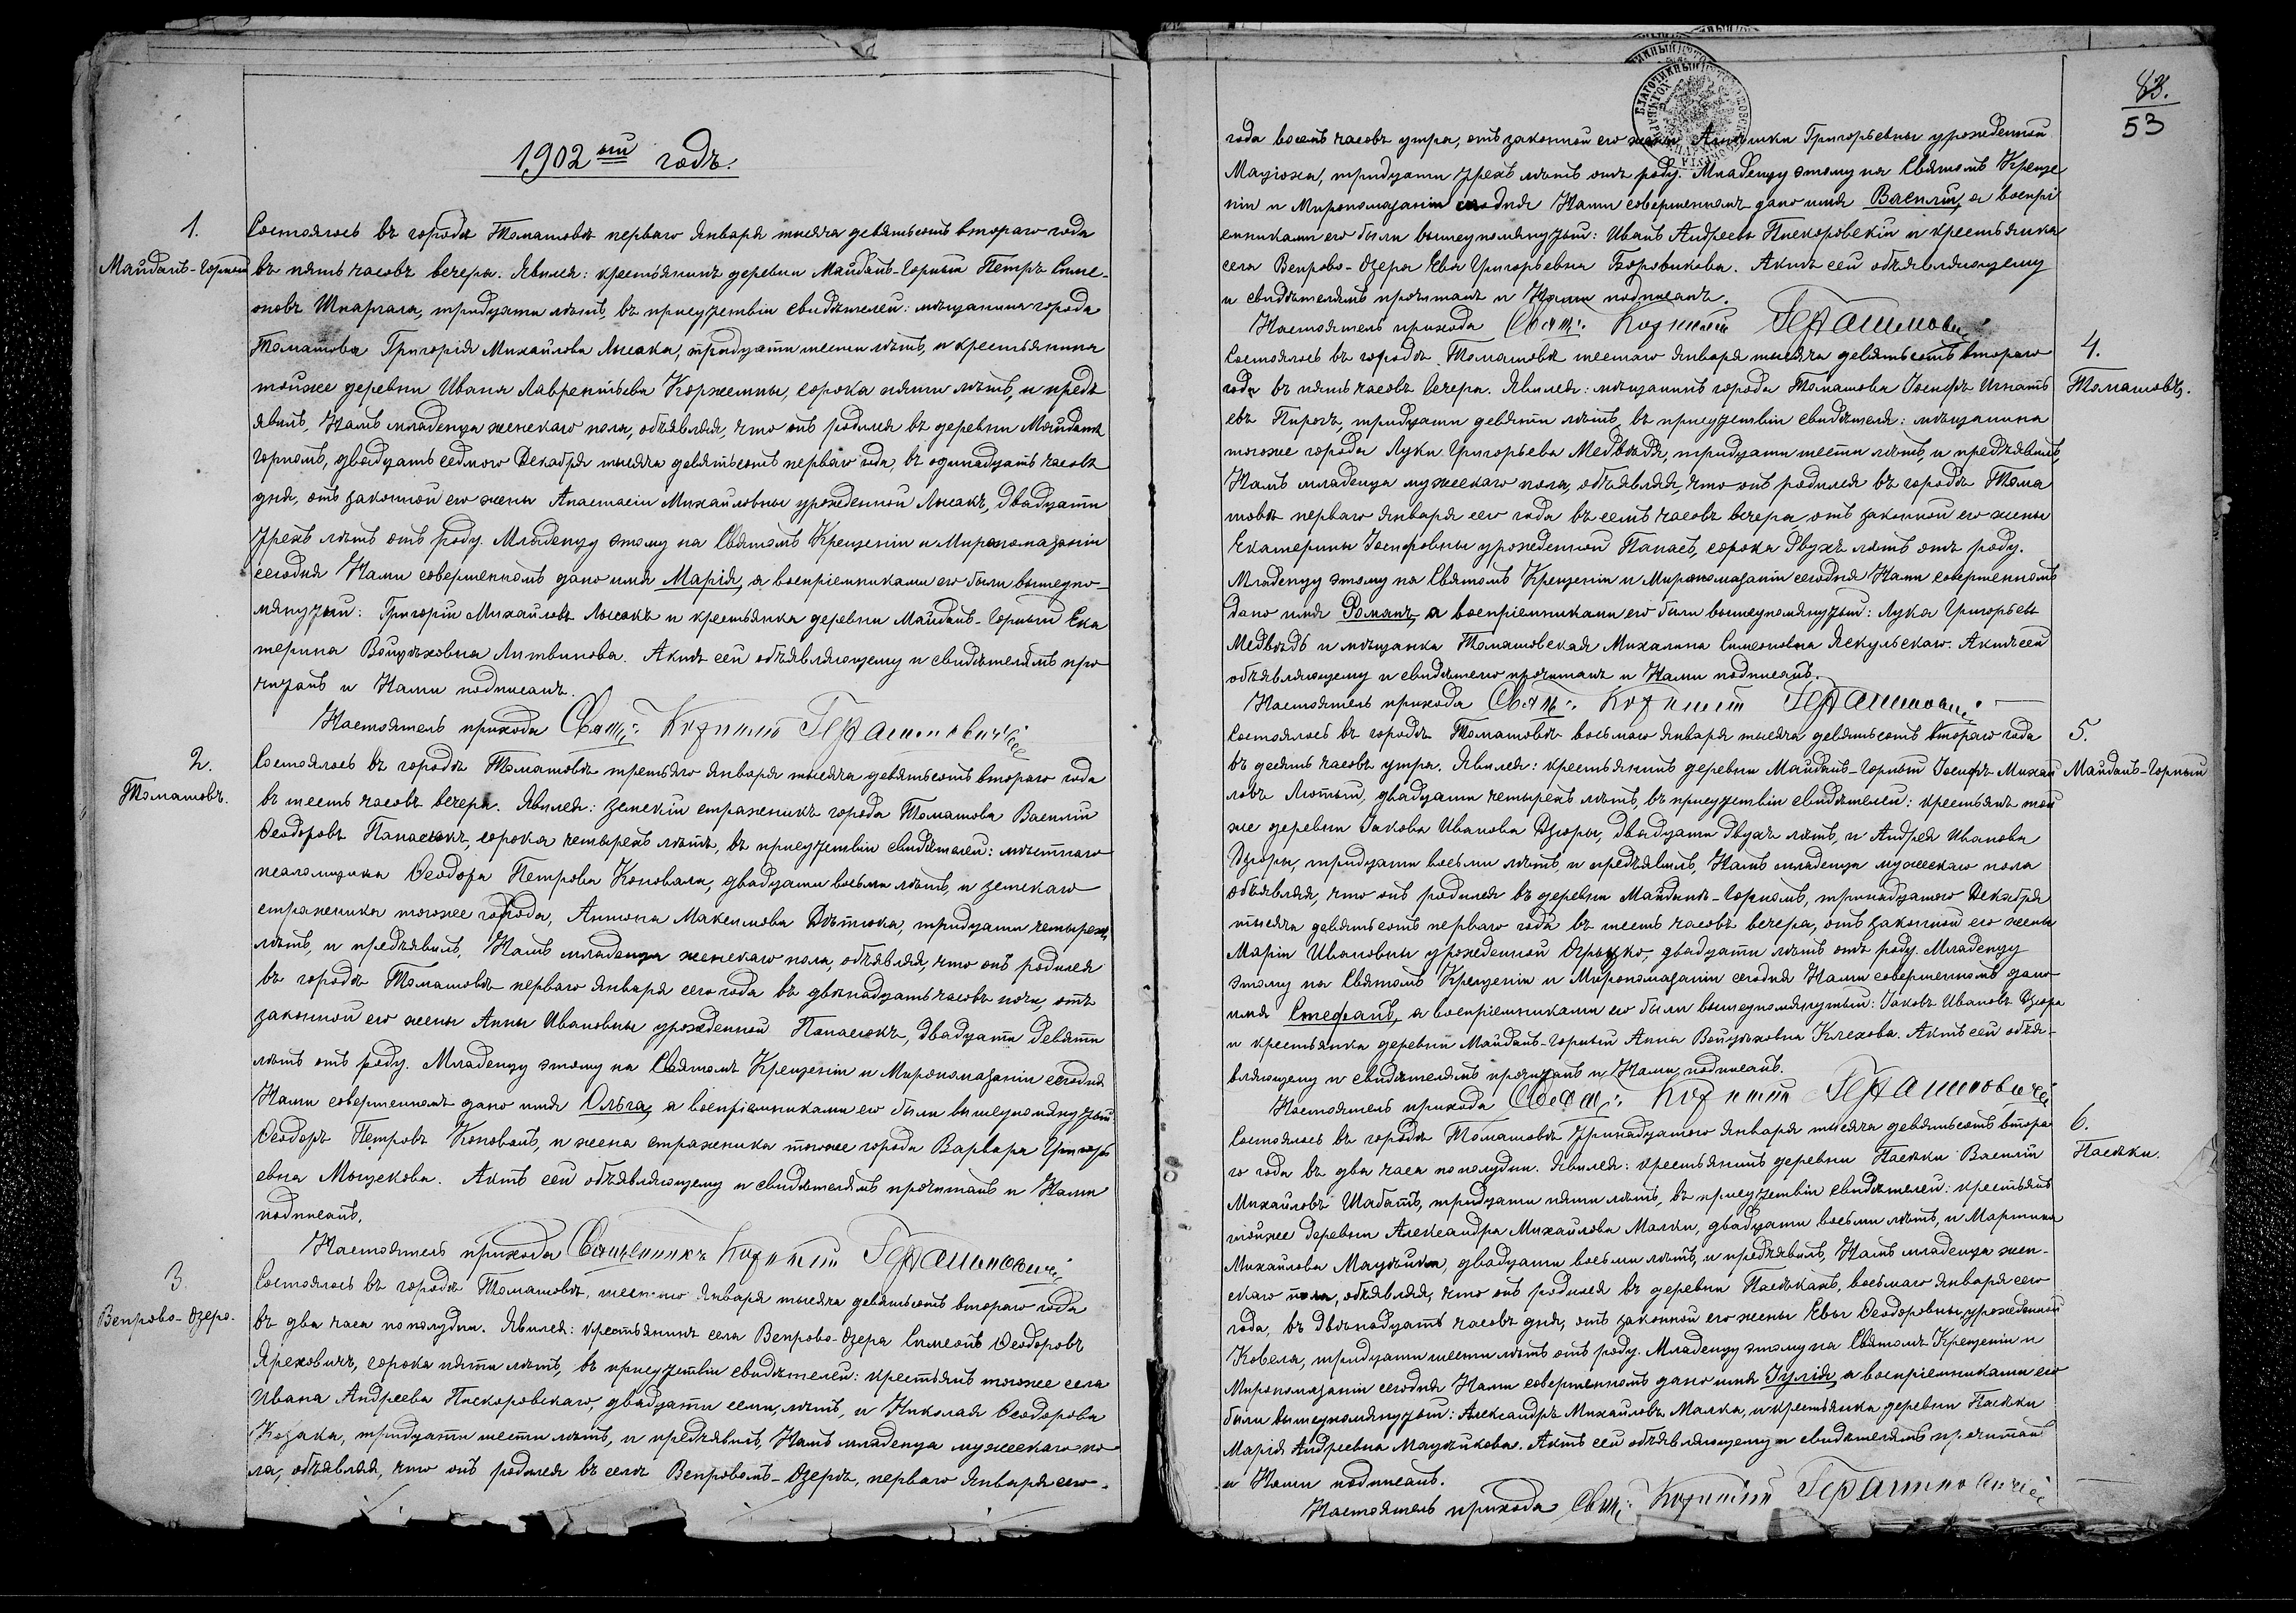 1902ой годъ.
1.
Майданъ-Горный
Состоялось въ городѣ Томашовѣ перваго Января тысяча девятьсотъ втораго года
въ пять часовъ вечера. Явился: крестьянинъ деревни Майданъ-Горный Петръ Симе-
оновъ Шкаргала, тридцати лѣтъ, въ присутствіи свидѣтелей: мѣщанина города
Томашова Григорія Михайлова Лысака, тридцати шести лѣтъ, и крестьянина
тойже деревни Ивана Лаврентьева Коржемпы, сорока пяти лѣтъ, и предъ
явилъ, Намъ младенца женскаго пола, объявляя, что онъ родился въ деревни Майданѣ
Горномъ, двадцать седмого Декабря тысяча девятьсотъ перваго года, въ одинадцать часовъ
дня, отъ законной его жены Анастасіи Михайловны урожденной Лысакъ, двадцати
трехъ лѣтъ отъ роду. Младенцу этому на Святомъ Крещеніи и Миропомазаніи
сегодня Нами совершенномъ дано имя Марія, а воспріемниками его были вышеупо-
мянутый: Григорій Михайловъ Лысакъ и крестьянка деревни Майданъ-Горный Ека
терина Войцѣховна Литвинова. Актъ сей объявляющему и свидѣтелямъ про
читанъ и Нами подписанъ.
Настоятель прихода Свящ: Герашимовичъ
2.
Томашовъ.
Состоялось въ городѣ Томашовѣ третьяго Января тысяча девятьсотъ втораго года
въ шесть часовъ вечера. Явился: земскій стражникъ города Томашова Василій
Ѳеодоровъ Панасюкъ, сорока четырехъ лѣтъ, въ присутствіи свидѣтелей: мѣстнаго
псаломщика Ѳеодора Петрова Коновала, двадцати восьми лѣтъ, и земскаго
стражника тогоже города, Антона Максимова Дѣтюка, тридцати четырехъ
лѣтъ, и предъявилъ, Намъ младенца женскаго пола, объявляя, что онъ родился
въ городѣ Томашовѣ перваго Января сего года въ двѣнадцать часовъ ночи, отъ
законной его жены Анны Ивановны урожденной Панасюкъ, двадцати девяти
лѣтъ отъ роду. Младенцу этому на Святомъ Крещеніи и Миропомазаніи сегодня
Нами совершенномъ дано имя Ольга, а воспріемниками его были вышеупомянутый
Ѳеодоръ Петровъ Коновалъ, и жена стражника тогоже города Варвара Григорь
евна Мощекова. Актъ сей объявляющему и свидѣтелямъ прочитанъ и Нами
подписанъ.
Настоятель прихода Священникъ Герашимовичъ
3.
Вепрово-Озеро.
Состоялось въ городѣ Томашовѣ, шестого Января тысяча девятьсотъ втораго года
въ два часа пополудни. Явился: крестьянинъ села Вепрово-Озера Симеонъ Ѳеодоровъ
Яреховичъ, сорока пяти лѣтъ, въ присутствіи свидѣтелей: крестьянъ тогоже села
Ивана Андреева Пискоровскаго, двадцати семи лѣтъ, и Николая Ѳеодорова
Козака, тридцати шести лѣтъ, и предъявилъ, Намъ младенца мужескаго по
ла, объявляя, что онъ родился въ селѣ Вепровомъ-Озерѣ, перваго Января сего
83.
53
года восемь часовъ утра, отъ законной его жены Григорьевны урожденной
Мазюха, тридцати трехъ лѣтъ отъ роду. Младенцу этому на Святомъ Креще
ніи и Миропомазаніи сегодня Нами совершенномъ дано имя Василій, а воспрі
емниками его были вышеупомянутый: Иванъ Андреевъ Пискоровскій и крестьянка
села Вепрово-Озера Ева Григорьевна Боровикова. Актъ сей объявляющему
и свидѣтелямъ прочитанъ и Нами подписанъ.
Настоятель прихода Свящ: Герашимовичъ
4.
Томашовъ.
Состоялось въ городѣ Томашовѣ шестаго Января тысяча девятьсотъ втораго
года въ пять часовъ вечера. Явился: мѣщанинъ города Томашова Іосифъ Игнать
евъ Пирогъ, тридцати девяти лѣтъ, въ присутствіи свидѣтеля: мѣщанина
тогоже города Луки Григорьева Медвѣдя, тридцати шести лѣтъ, и предъявилъ,
Намъ младенца мужескаго пола, объявляя, что онъ родился въ городѣ Тома
шовѣ перваго Января сего года въ семь часовъ вечера, отъ законной его жены
Екатерины Іосифовны урожденной Панасъ, сорока двухъ лѣтъ отъ роду.
Младенцу этому на Святомъ Крещеніи и Миропомазаніи сегодня Нами совершенномъ
дано имя Романъ, а воспріемниками его были вышеупомянутый: Лука Григорьевъ
Медвѣдь и мѣщанка Томашовская Михалина Симеоновна Якульскаго. Актъ сей
объявляющему и свидѣтелю прочитанъ и Нами подписанъ.
Настоятель прихода Свящ: Герашимовичъ
5.
Майданъ-Горный
Состоялось въ городѣ Томашовѣ восьмаго Января тысяча девятьсотъ втораго года
въ десять часовъ утра. Явился: крестьянинъ деревни Майданъ-Горный Іосифъ Михай
ловъ Лютый, двадцати четырехъ лѣтъ, въ присутствіи свидѣтелей: крестьянъ той
же деревни Іакова Иванова Дзюры, двадцати двухъ лѣтъ, и Андрея Иванова
Дзюры, тридцати восьми лѣтъ, и предъявилъ, Намъ младенца мужескаго пола
объявляя, что онъ родился въ деревни Майданъ-Горномъ, тринадцатого Декабря
тысяча девятьсотъ перваго года въ шесть часовъ вечера, отъ законной его жены
Маріи Ивановны урожденной двадцати лѣтъ отъ роду. Младенцу
этому на Святомъ Крещеніи и Миропомазаніи сегодня Нами совершенномъ дано
имя Стефанъ, а воспріемниками его были вышеупомянутый: Іаковъ Ивановъ Дзюра
и крестьянка деревни Майданъ-Горный Анна Войцѣховна Клехова. Актъ сей объя-
вляющему и свидѣтелямъ прочитанъ и Нами подписанъ.
Настоятель прихода Свящ: Герашимовичъ
6.
Пасѣки.
Состоялось въ городѣ Томашовѣ тринадцатого Января тысяча девятьсотъ втора
го года въ два часа пополудни. Явился: крестьянинъ деревни Пасѣки Василій
Михайловъ Шабатъ, тридцати пяти лѣтъ, въ присутствіи свидѣтелей: крестьянъ
тойже деревни Александра Михайлова Малки, двадцати восьми лѣтъ, и Мартина
Михайлова двадцати восьми лѣтъ, и предъявилъ, Намъ младенца жен-
скаго пола, объявляя, что онъ родился въ деревни Пасѣкахъ, восьмаго Января сего
года, въ двѣнадцать часовъ дня, отъ законной его жены Евы Ѳеодоровны, урожденной
Ковела, тридцати шести лѣтъ отъ роду. Младенцу этому на Святомъ Крещеніи и
Миропомазаніи сегодня Нами совершенномъ дано имя Іулія, а воспріемниками его
были вышеупомянутый: Александръ Михайловъ Малка, и крестьянка деревни Пасѣки
Марія Андреевна Мацѣйкова. Актъ сей объявляющему и свидѣтелямъ прочитанъ
и Нами подписанъ.
Настоятель прихода Свящ: Герашимовичъ